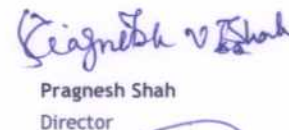 Pragnesh V Shah
Pragnesh Shah
Director